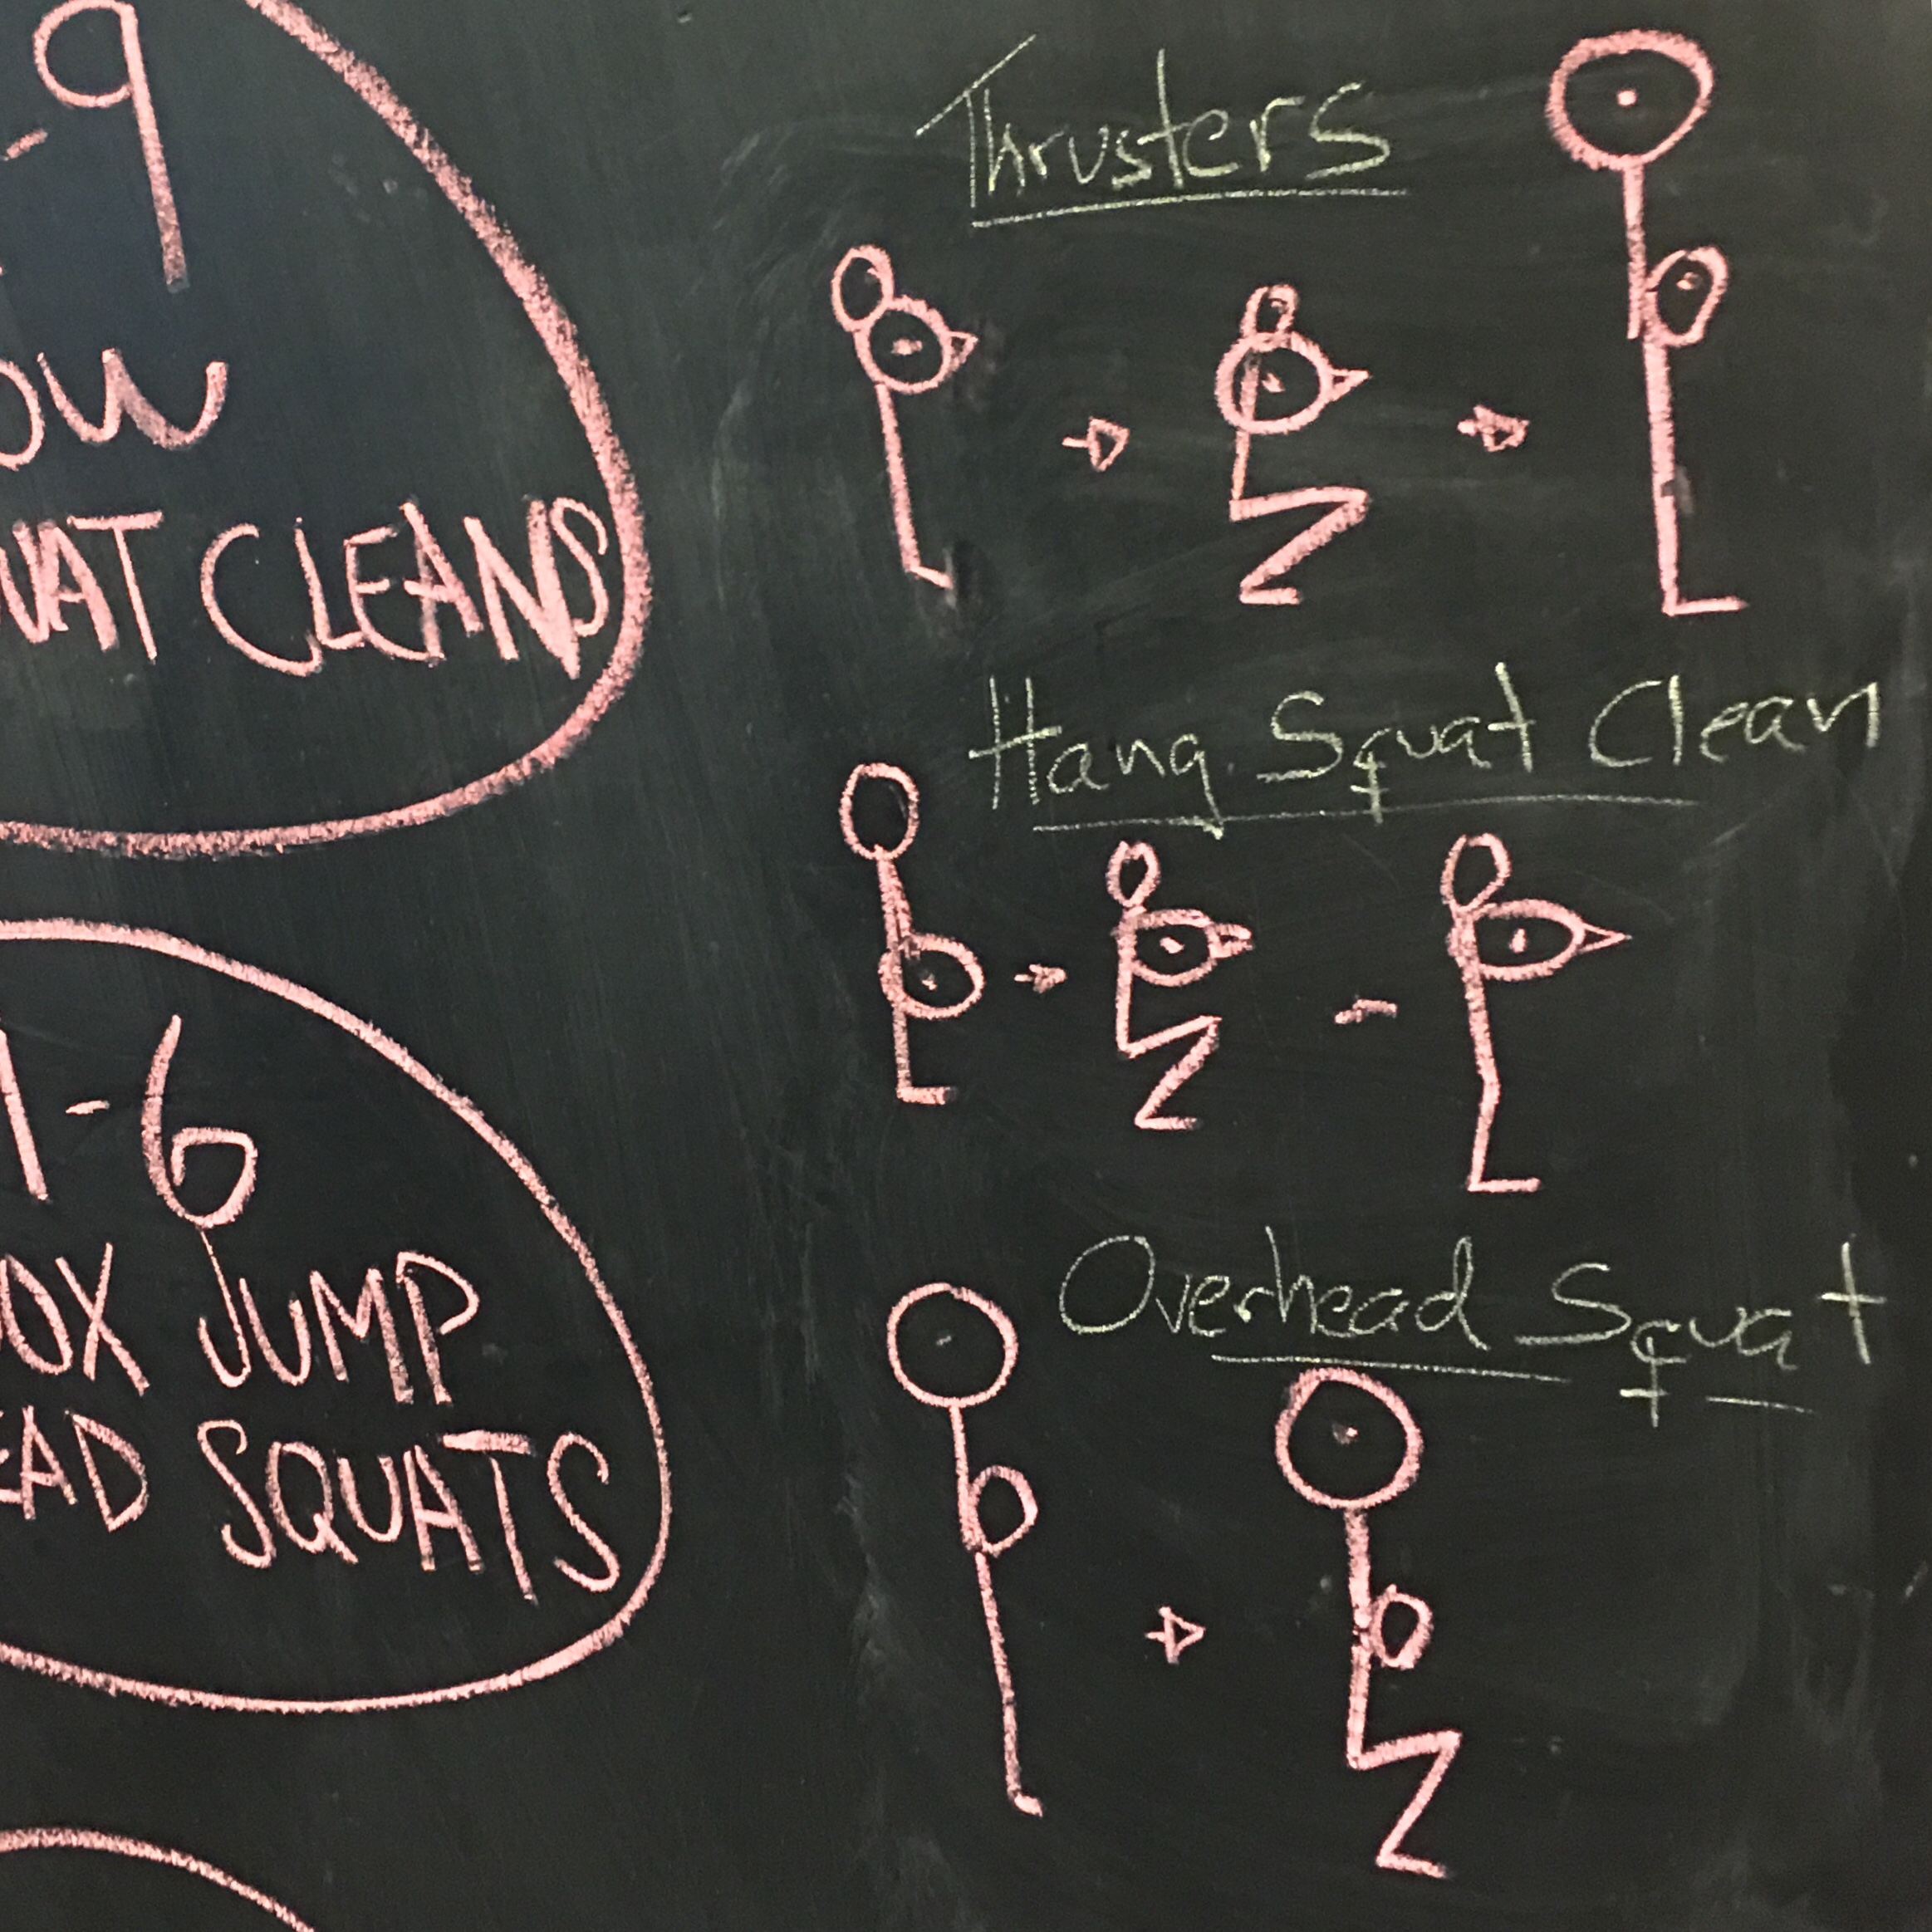 -9
OW
UAT CLEANS
1-6
OX JUMP
EAD SQUATS
Thrusters
Hang Squat Clean
Overhead Squat